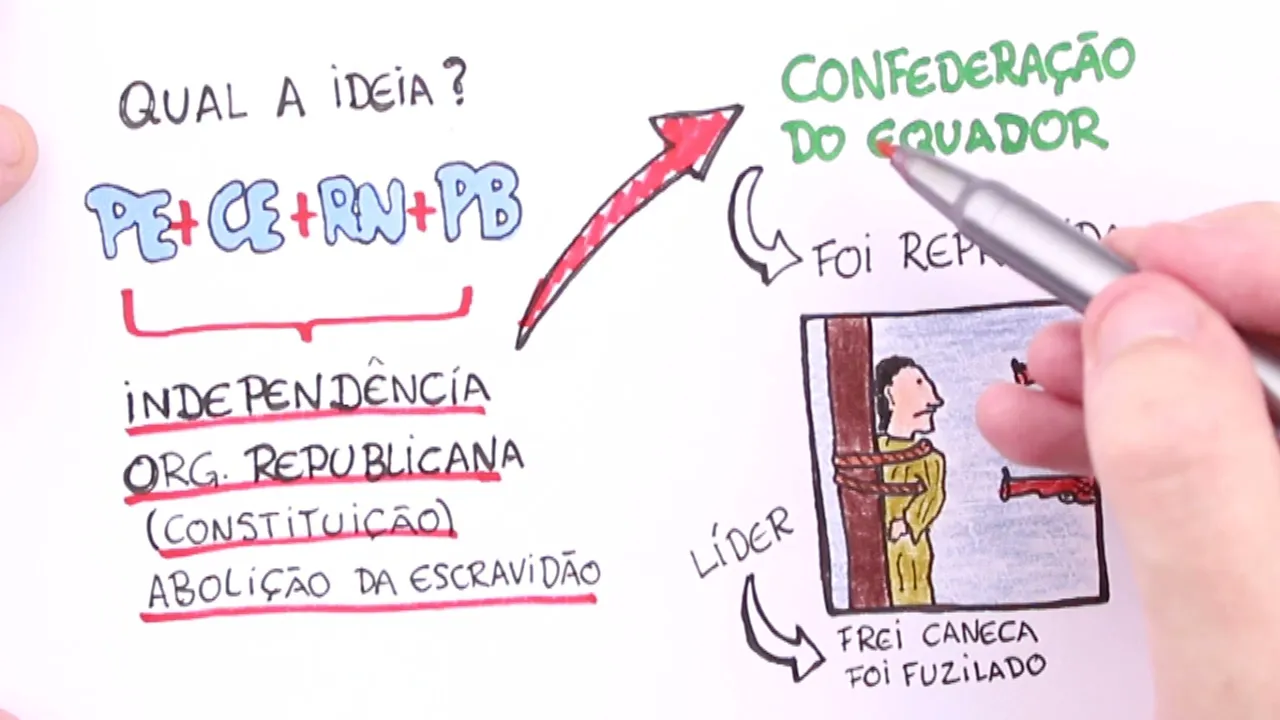 QUAL A IDEIA?
PE+CE+RN+PB
INDEPENDÊNCIA
ORG. REPUBLICANA
(CONSTITUIÇÃO)
ABOLIÇÃO DA ESCRAVIDÃO
CONFEDERAÇÃO
DO EQUADOR
FOI
LÍDER
FREI CANECA
FOI FUZILADO